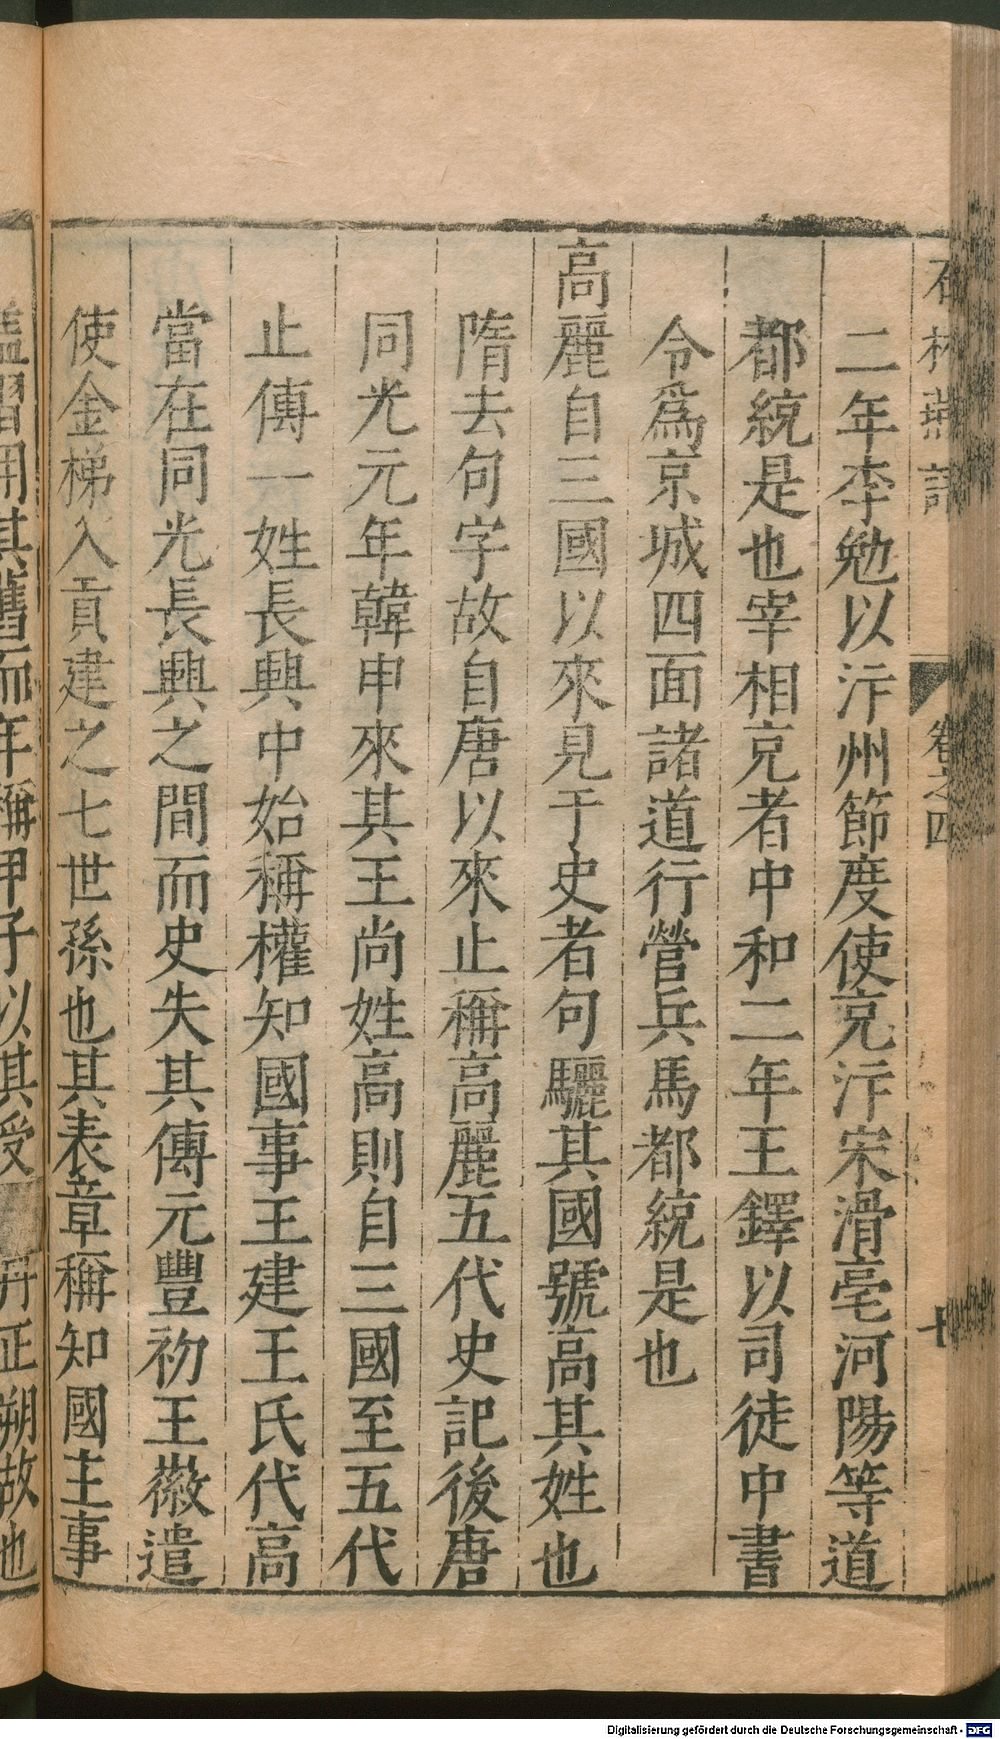 石林燕語 卷之四 十
二年李勉以汴州節度使兗汴宋滑亳河陽等道
都統是也宰相兗者中和二年王鐸以司徒中書
令爲京城四面諸道行營兵馬都統是也
高麗自三國以來見于史者句驪其國號高其姓也
隋去句字故自唐以來止稱高麗五代史記後唐
同光元年韓申來其王尚姓高則自三國至五代
止傳一姓長興中始稱權知國事王建王氏代高
當在同光長興之間而史失其傳元豐初王徽遣
使金梯入貢建之七世孫也其表章稱知國主事
習用其舊而年稱甲子以其受 丹正朔故也
Digitalisierung gefördert durch die Deutsche Forschungsgemeinschaft - DFG